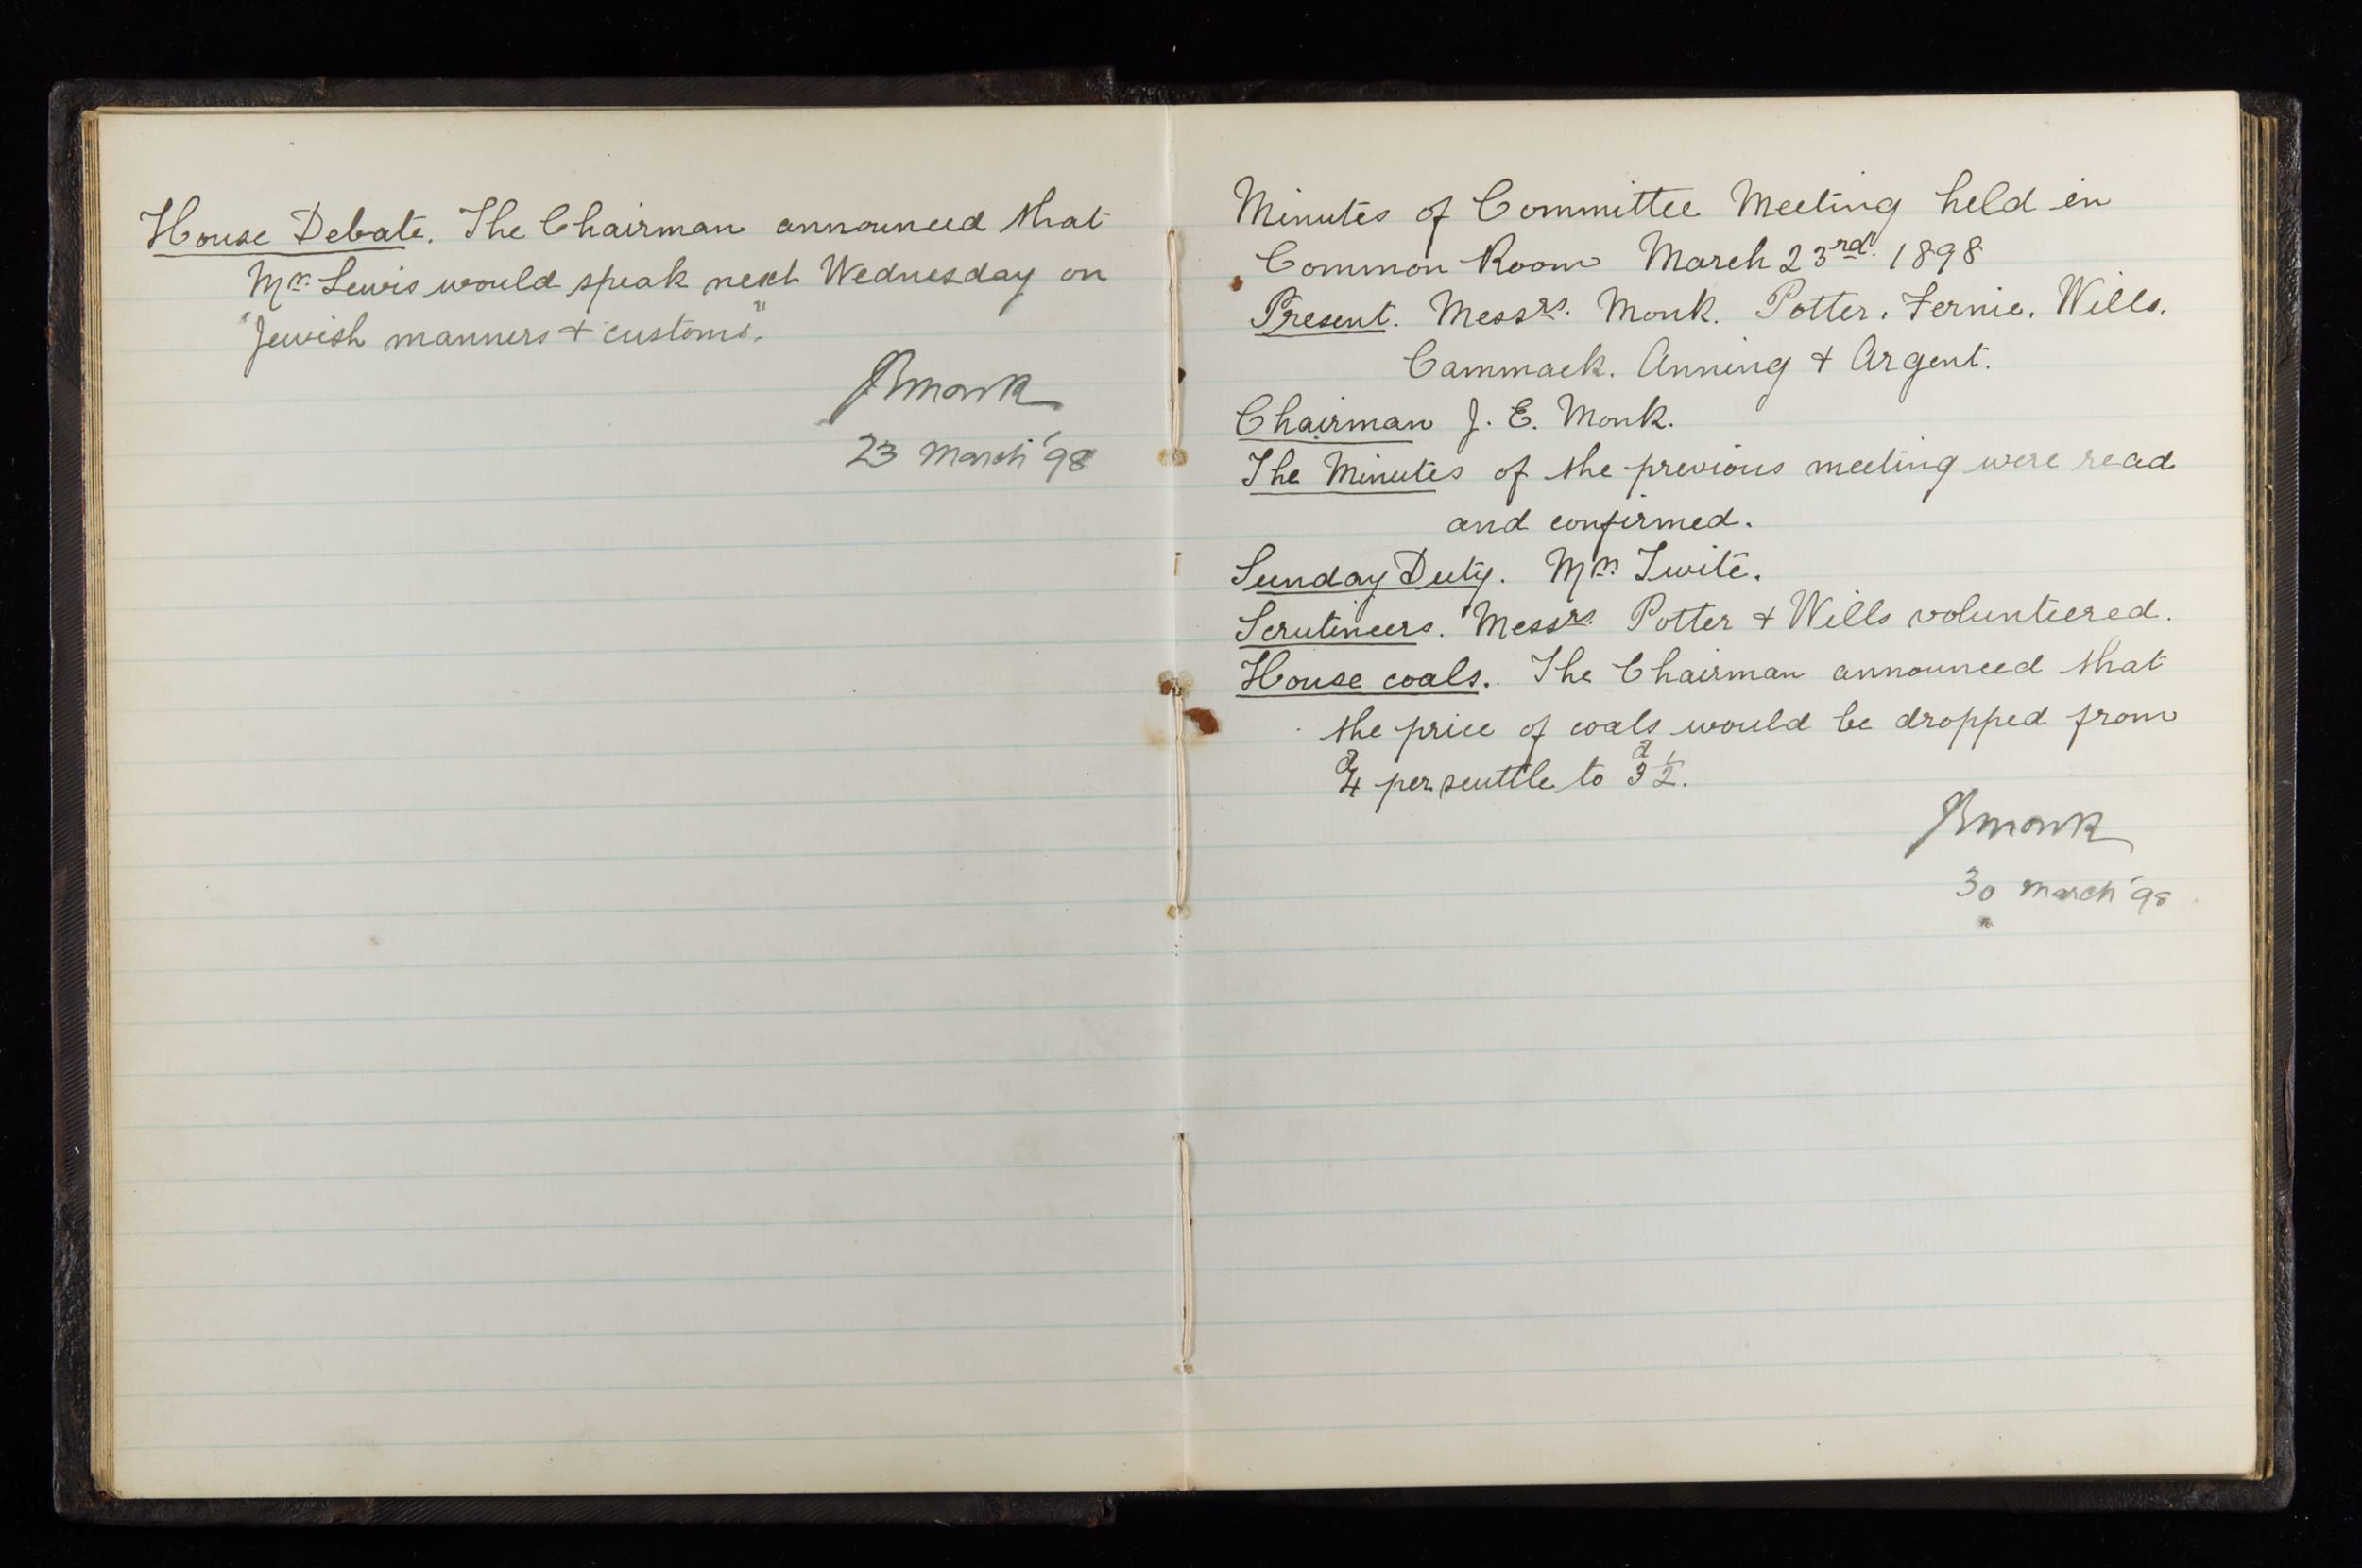 House Debate. The Chairman announced that
Mr. Lewis would speak next Wednesday on
"Jewish manners + customs".
JEMonk
23 March '98
Minutes of Committee Meeting held in
Common Room March 23rd. 1898
Present. Messrs. Monk. Potter. Fernie. Wills.
Cammack. Anning + Argent.
Chairman J. E. Monk.
The Minutes of the previous meeting were read
and confirmed.
Sunday Duty. Mr. Twite.
Scrutineers. Messrs. Potter + Wills volunteered.
House coals. The Chairman announced that
the price of coals would be dropped from
4d per scuttle to 3d ½.
JEMonk
30 March '98